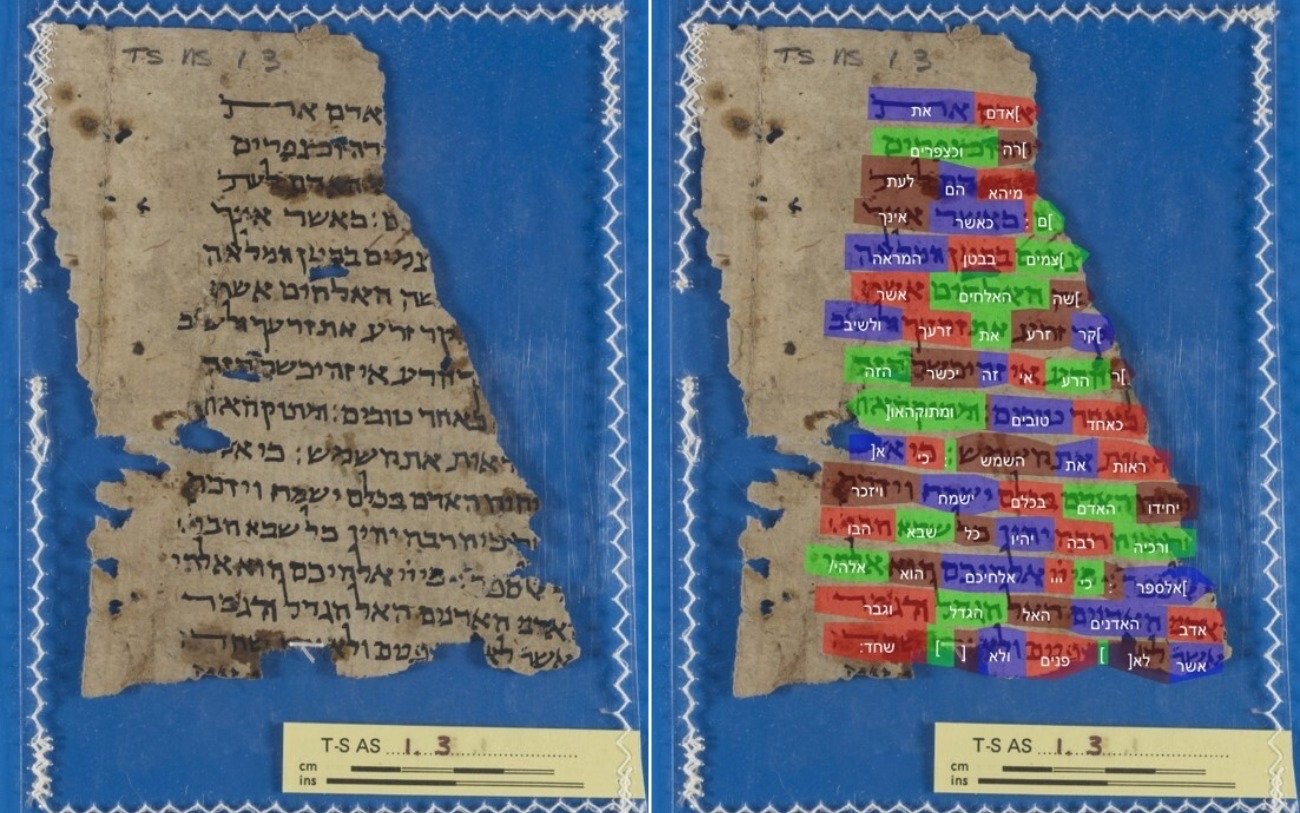 T-S NS 1 3
אדם את
רה וכצפרים
האדם לעת
ם : כאשר אינך
צמים בבטן המלאה
שה האלהים אשר
קר זרע את זרעך
אי זה יכשר הזה
כאחד טובים : ומתוק האו
ראות את השמש : כי א
האדם בכלם ישמח ויזכר
יהיו כל שבא הב
ספר : כי ייי אלהיכם הוא אלהי
האדנים האל הגדל והגבר
אשר לא פנים ולא שחד
T-S AS 1. 3
cm
ins
T-S NS 1 3
]אדם את
]רה וכצפרים
מיהא הם לעת
]ם : כאשר אינך
]צמים בבטן המראה
]שה האלחים אשר
]קר זרע את זרעך ולשיב
]ר הרע אי זה יכשר הזה
כאחד טובים ומתוקהאו[
ראות את השמש : כי א[
יחידו האדם בכלם ישמח ויזכר
ורכיה רבה יהיו כל שבא הבו
]אלספר : כי ייי אלחיכם הוא אלהי/
אדב האדנים האל הגדל וגבר
אשר לא[ ] פנים ולא [ ] שחד:
T-S AS 1. 3
cm
ins